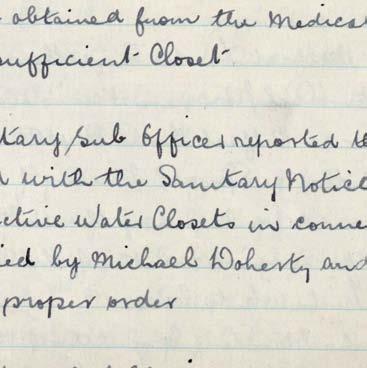 obtained from the Medica
sufficient Closet.
itary Sub Officer reported t
with the Sanitary Notice
ctive Water Closets in conne
ied by Michael Doherty and
proper order